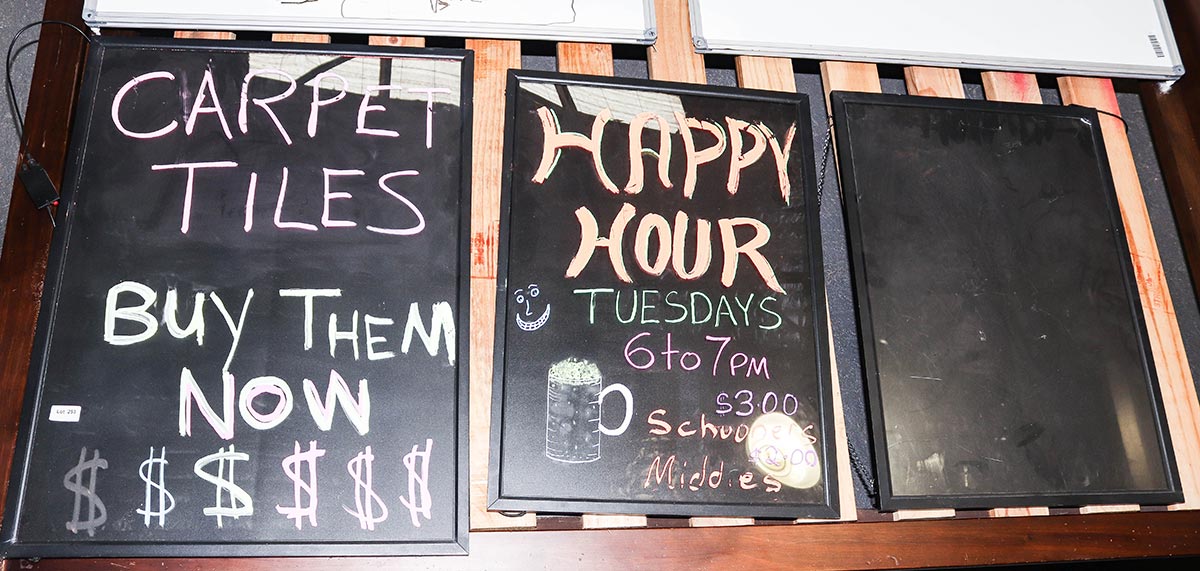 CARPET
TILES
BUY THEM
NOW
$ $ $ $ $ $
Lot 251
HAPPY
HOUR
TUESDAYS
6 to 7PM
$3.00
Schooners
Middies